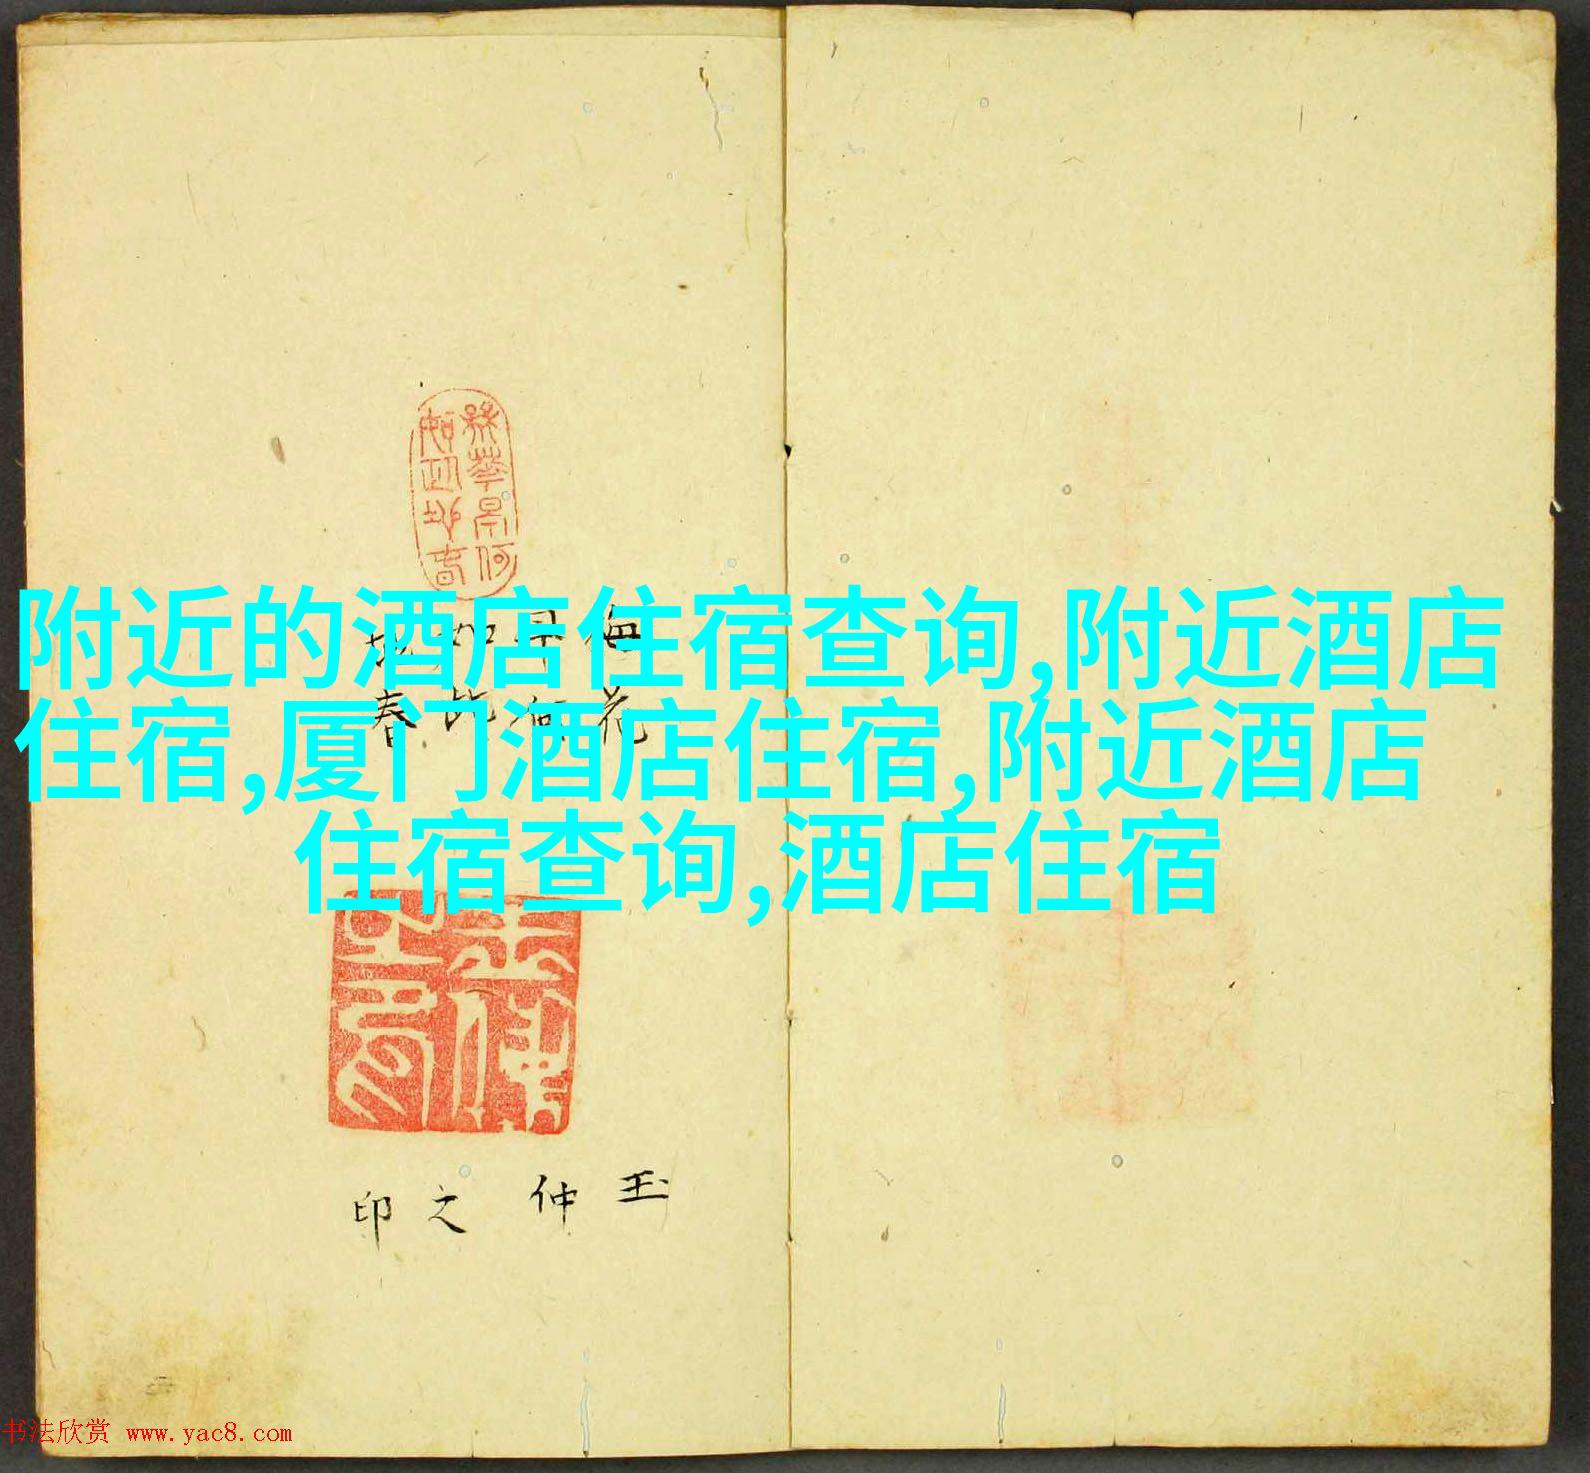 附近的酒店住宿查询,附近酒店
住宿,厦门酒店住宿,附近酒店
住宿查询,酒店住宿
梅花
何
如此
春
玉仲之印
书法欣赏 www.yac8.com